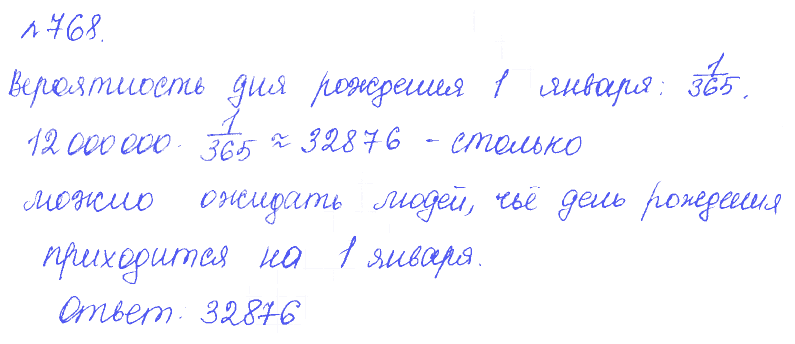 №768.
Вероятность дня рождения 1 января: 1/365.
12 000 000 · 1/365 ≈ 32876 - столько
можно ожидать людей, чьё день рождения
приходится на 1 января.
Ответ: 32876